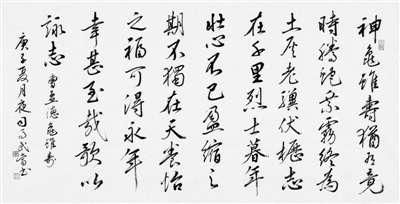 神龜雖壽猶有竟
時騰蛇乘霧終為
土灰老驥伏櫪志
在千里烈士暮年
壯心不已盈縮之
期不獨在天養怡
之福可得永年
幸甚至哉歌以
詠志 曹孟德龜雖壽
庚子夏月夜書